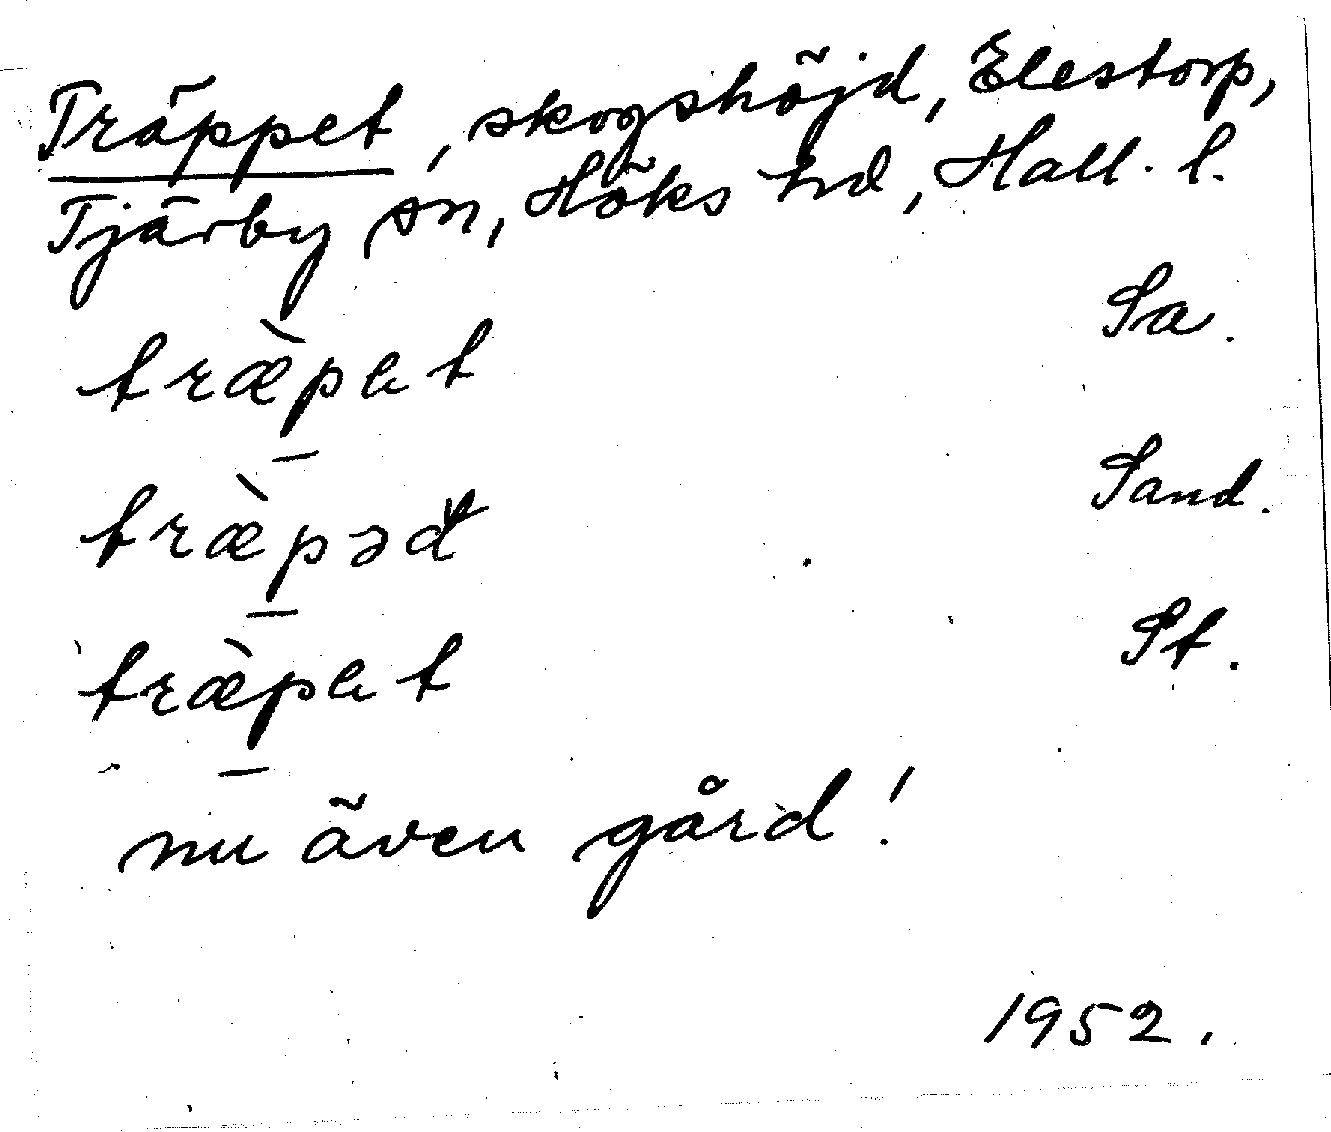 Träppet, skogshöjd, Elestorp,
Tjärby sn, Höks hd, Hall. l.
træ̀p̠et Sa.
træ̀p̠əd Sand.
træ̀p̠et St.
nu även gård!
1952.